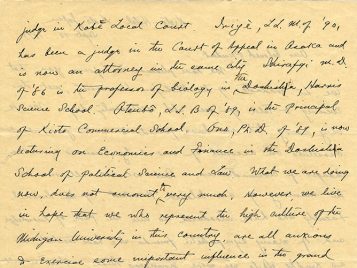 judge in Kobe Local Court Inigé, LL. M. of '90,
has been a judge in the Court of Appeal in Osaka and
is now an attorney in the same city Shiraji: M. D.
of '86 is the professor of biology in the Doshisha, Harris
Science School. Otsubo, LL. B of '89, is the principal
of Kioto Commercial School. Ono, Ph. D. of '89, is now
lecturing on Economics and Finance in the Doshisha
School of Political Science and Law What we are doing
now, does not amount to very much, However we live
in hope that we who represent the high culture of the
Michigan University in this country are all anxious
to exercise some important influence in the grand